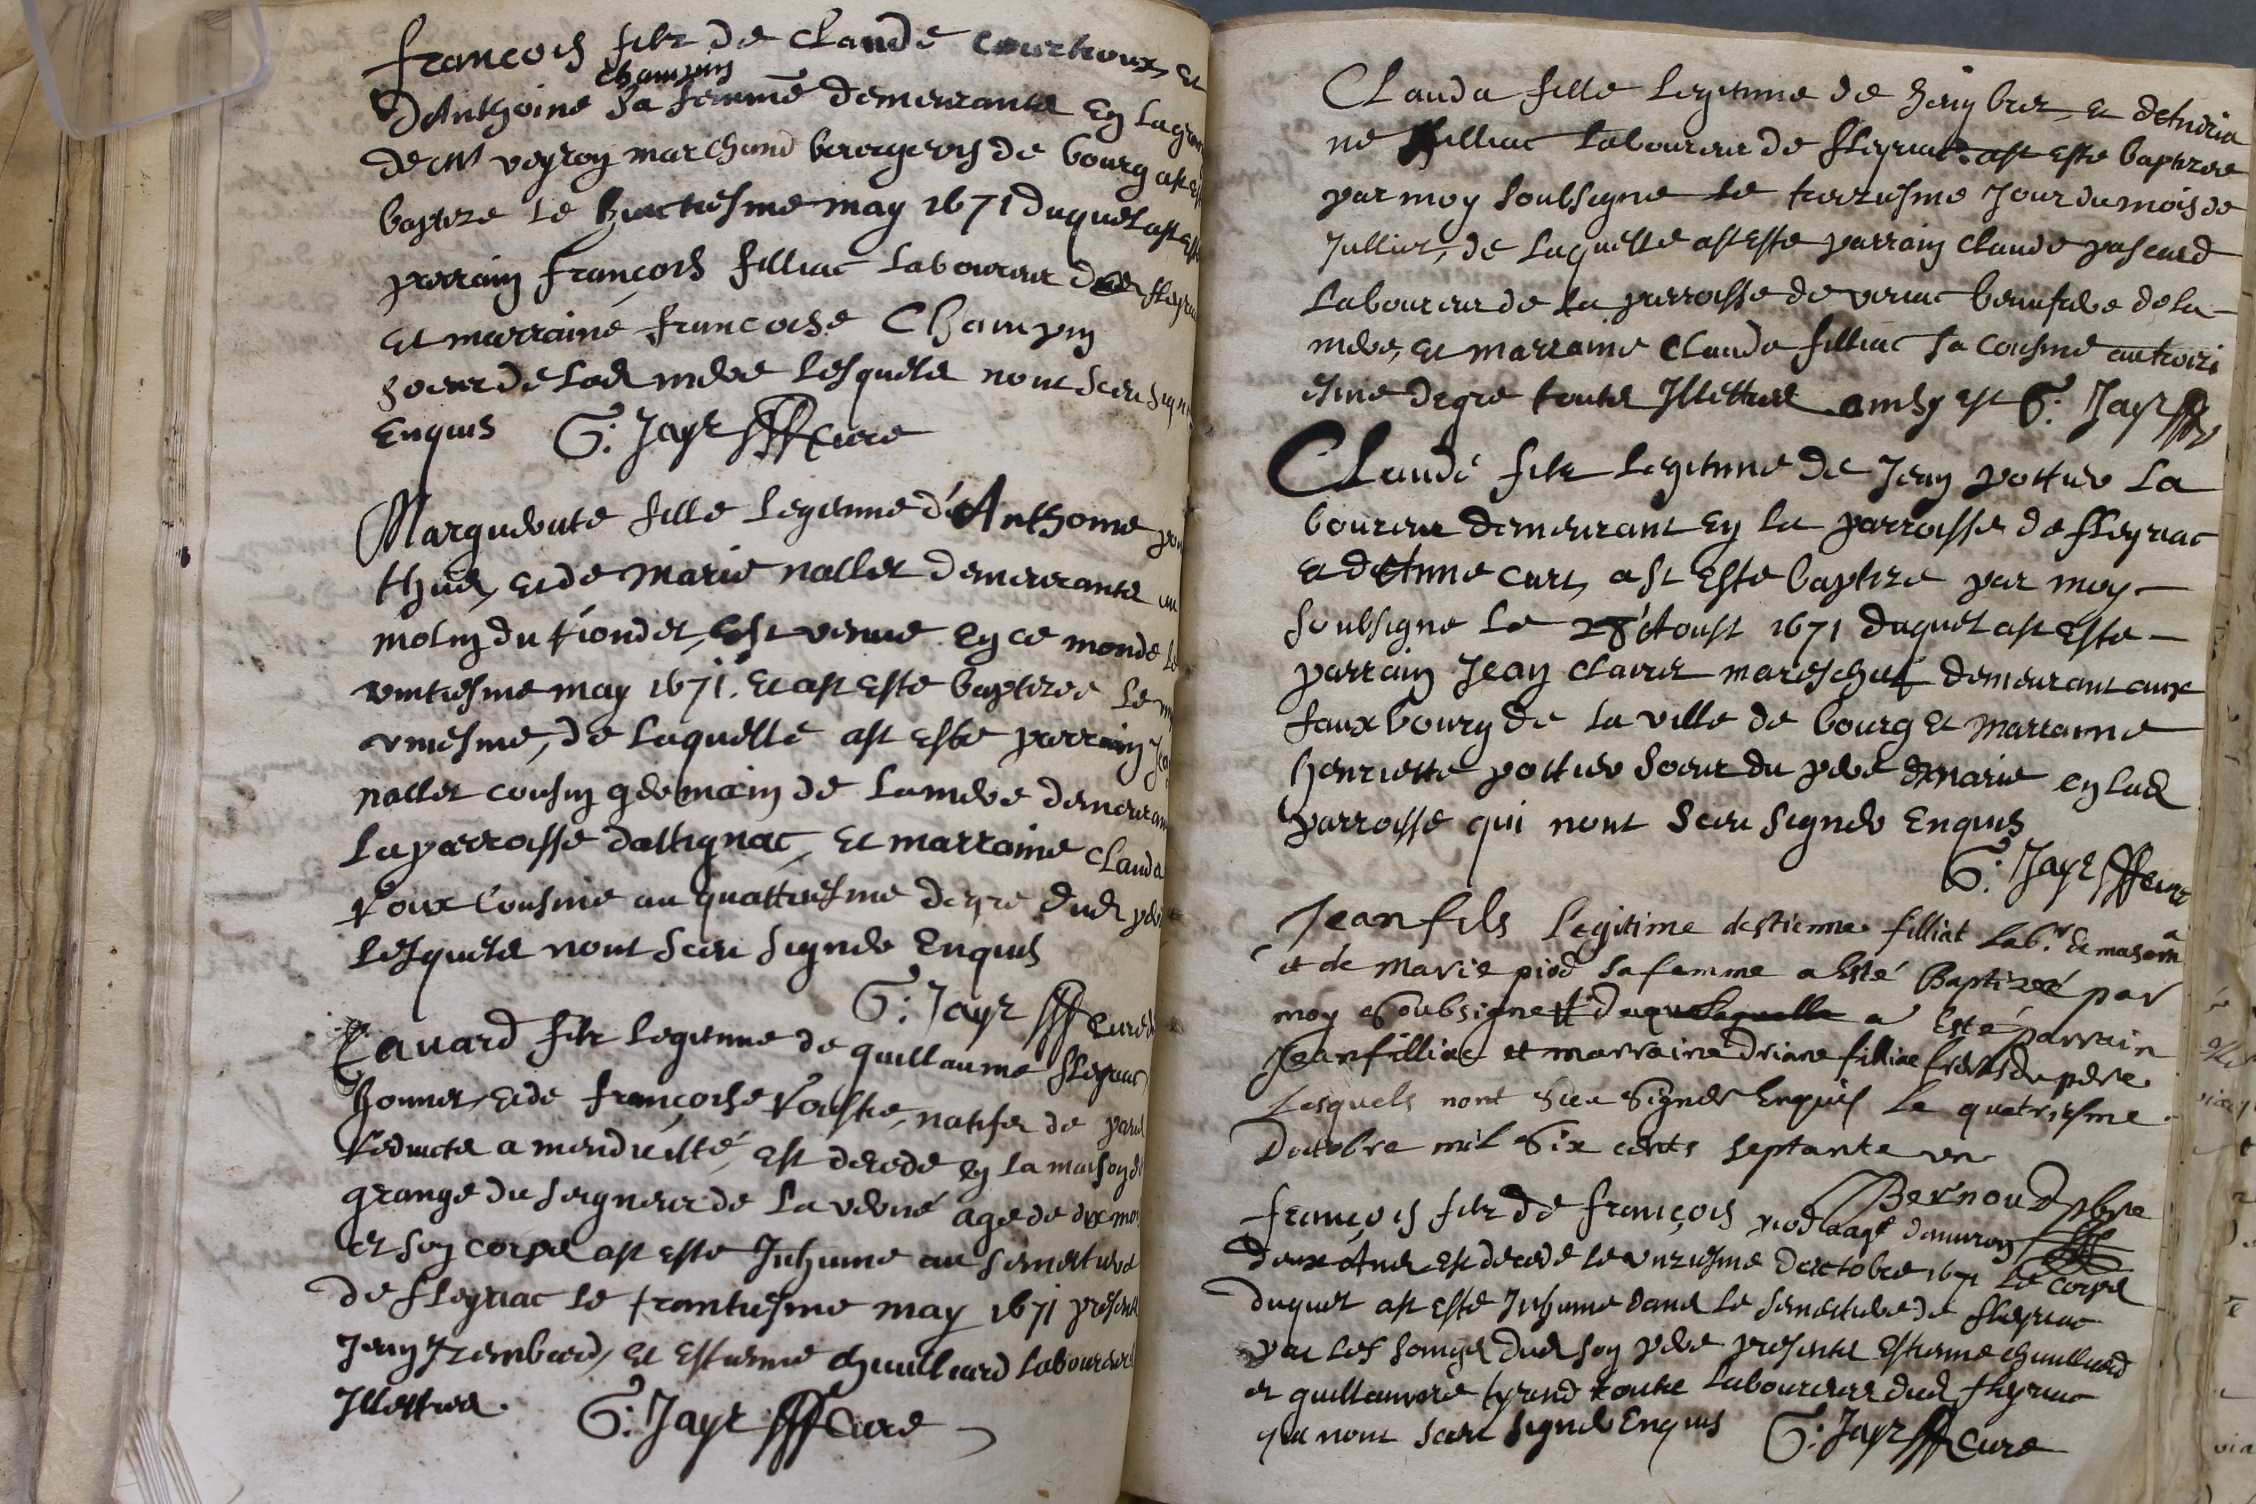 francois filz de Claude Courtioux, et
Champin
DAnthoine sa femme demeurantz en la gran
de Mr veyron marchand bourgeois de bourg ast est
baptize le huictiesme may 1671 duquel ast esté
parrain françois filliac laboureur de fleyria
et marraine francoise Champin
soeur de lad mere lesquelz nont sceu sign
Enquis G: Jayr Cure
Marguerite fille legitime d'Anthoine po
thier, et de Marie nallet demeurantz au
molin du riondet, est venue en ce monde le
vintiesme may 1671. et ast esté baptizee le
vniesme, de laquelle ast esté parrain Jea
nallet cousin germain de la mere demeuran
la parroisse dattignac, et marraine Clauda
Roux Cousine au quattriesme degre dud pere
lesquelz nont sceu signer Enquis
G: Jayr cure
Eduard filz legitime de guillaume fleyriac
honnet, et de françoise, natifz de
reduictz a mendicité, est decede en la maison de
grange du seigneur de la verné age de dix mo
et son corps ast esté Inhumé au semetiere
de fleyriac le trantiesme may 1671 present
Jean Trembard, et Estienne chuilliard laboureurs
Illettres. G: Jayr Cure
Clauda fille legitime de heny bret, et
ne filliac laboureur de fleyriac ast esté baptizee
par moy soubsigne le treziesme Jour du mois de
Jullier, de laquelle ast esté parrain Claude pascard
laboureur de la parroisse de veriac beaufrere de la
mere, et marraine Claude filliac sa Cousine au troizi
esme degre toutz Illettres ainsy est G: Jayr
Claude filz legitime de Jean pottier la
boureur demeurant en la parroisse de fleyriac
et dettine curt, ast esté baptize par moy
soubsigne le 28 Aoust 1671 duquel ast esté
parrain Jean Claret mareschal demeurant aux
fauxbourg de la ville de bourg et Marraine
henriette pottier soeur du pere Marie en lad
parroisse qui nont sceu signer Enquis
G: Jayr cure
Jean fils legitime destienne filliat Lab.r de
et de Marie piod sa femme a esté Baptizé par
moy Soubsigne duquel a esté parrain
Jean filliac et marraine Driane filliac freres du pere
Lesquels nont sceu signer Enquis le quatriesme
Doctobre mil six cents septante un
Bernoud pbre
François filz de françois piod aagé denuiron
deux Ans est decede le vnziesme doctobre 1671 le Corps
duquel ast esté Inhume dans le semetiere de fleyriac
par les soings dud son pere presentz Estienne chuilliard
et guillaume tyrand toutz laboureurs dud fleyriac
qui nont sceu signer Enquis G: Jayr Cure